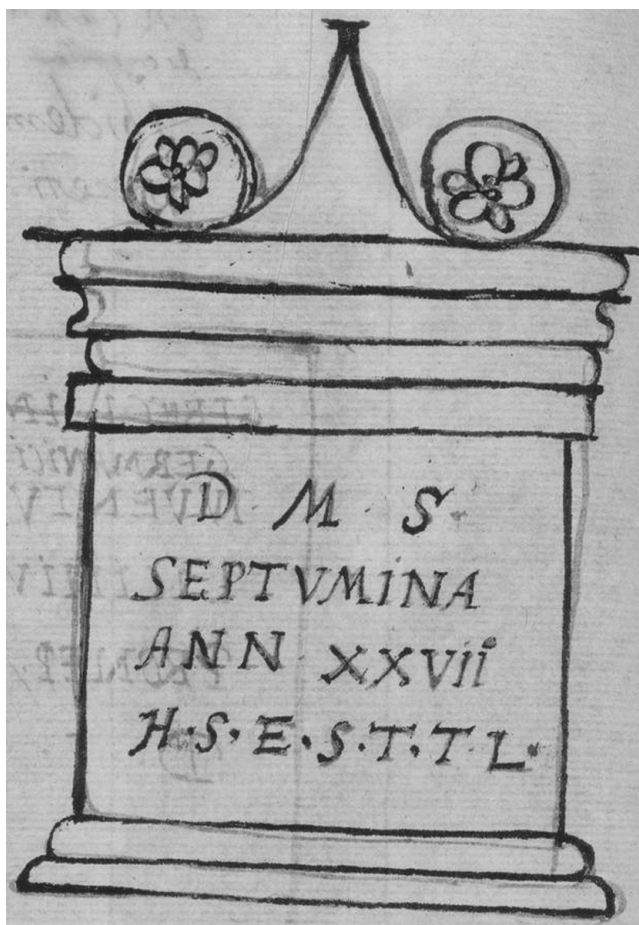 D M S
SEPTVMINA
ANN XXVII
H.S.E.S.T.T.L.